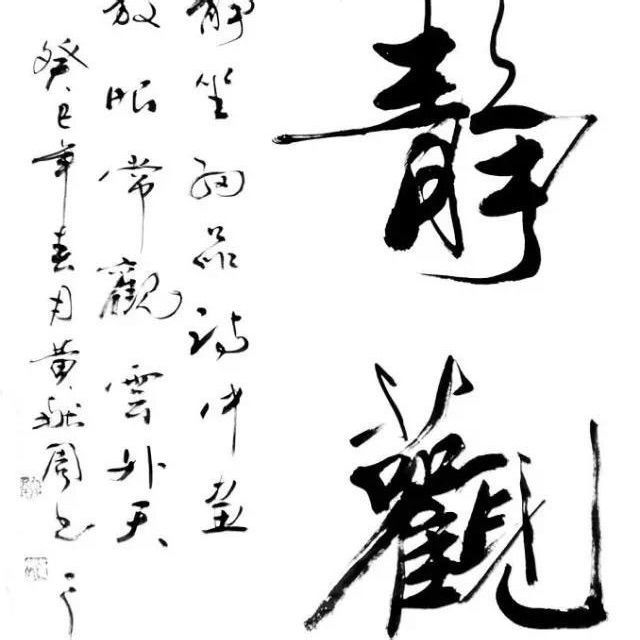 靜觀
靜坐細品詩中畫
放眼常觀雲外天
癸巳年春月黃繼周書